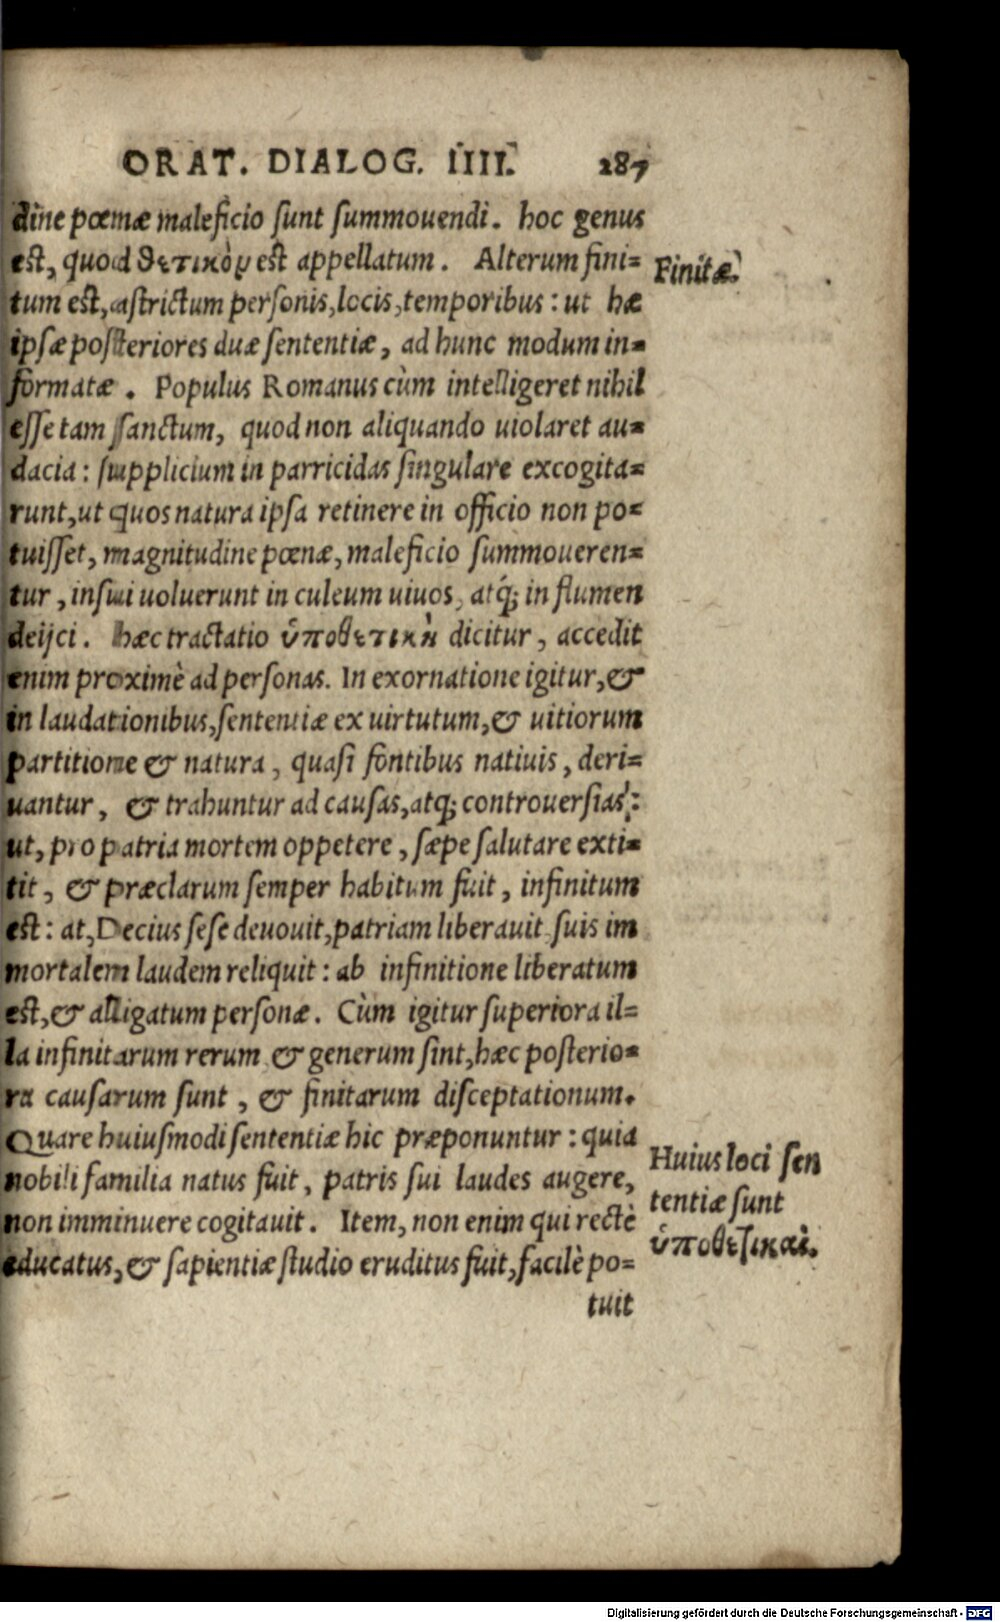 ORAT. DIALOG. IIII. 287
dine pœnæ maleficio sunt summouendi. hoc genus
est, quod θετικὸν est appellatum. Alterum fini=
Finitæ.
tum est, astrictum personis, locis, temporibus: ut hæ
ipsæ posteriores duæ sententiæ, ad hunc modum in=
formatæ. Populus Romanus cùm intelligeret nihil
esse tam sanctum, quod non aliquando uiolaret au=
dacia: supplicium in parricidas singulare excogita=
runt, ut quos natura ipsa retinere in officio non po=
tuisset, magnitudine pœnæ, maleficio summoueren=
tur, insui uoluerunt in culeum uiuos, atq́; in flumen
deijci. hæc tractatio ὑποθετικὴ dicitur, accedit
enim proximè ad personas. In exornatione igitur, &
in laudationibus, sententiæ ex uirtutum, & uitiorum
partitione & natura, quasi fontibus natiuis, deri=
uantur, & trahuntur ad causas, atq; controuersias:
ut, pro patria mortem oppetere, sæpe salutare exti=
tit, & præclarum semper habitum fuit, infinitum
est: at, Decius sese deuouit, patriam liberauit, suis im
mortalem laudem reliquit: ab infinitione liberatum
est, & alligatum personæ. Cùm igitur superiora il=
la infinitarum rerum & generum sint, hæc posterio=
ra causarum sunt, & finitarum disceptationum.
Quare huiusmodi sententiæ hic præponuntur: quia
nobili familia natus fuit, patris sui laudes augere,
non imminuere cogitauit. Item, non enim qui rectè
educatus, & sapientiæ studio eruditus fuit, facilè po=
Huius loci sen
tentiæ sunt
ὑποθετικαί.
tuit
Digitalisierung gefördert durch die Deutsche Forschungsgemeinschaft - DFG